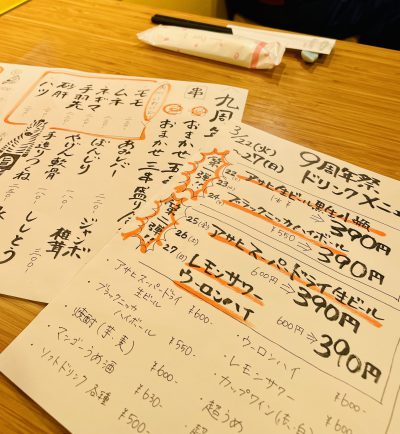 9周年祭
ドリンクメニュ
3/22(火)
27(日)
第一弾!
22(火)
23
24
アサヒ生ビール黒生小瓶
390円
ブラックニッカハイボール
¥550⇒390円
第二弾!
25(金)
26(土)
27(日)
アサヒスーパードライ生ビール
600円⇒390円
レモンサワー
ウーロンハイ
600円⇒390円
・アサヒスーパードライ
生ビール ¥600-
・ブラックニッカ
ハイボール ¥550-
・焼酎(芋・麦) ¥600-
・アンゴーうめ酒 ¥630-
・ソフトドリンク各種 ¥500-
・ウーロンハイ
・レモンサワー
・カップワイン(赤・白)
・超うめ
・超
九周年
串
おまかせ五
おまかせ三本盛り
モモ
ムネ
ネギマ
手羽先
砂肝
ハツ
あみレバー
ばいじり
やげん軟骨
手造りつくね
ジャンボ
椎茸
ししとう